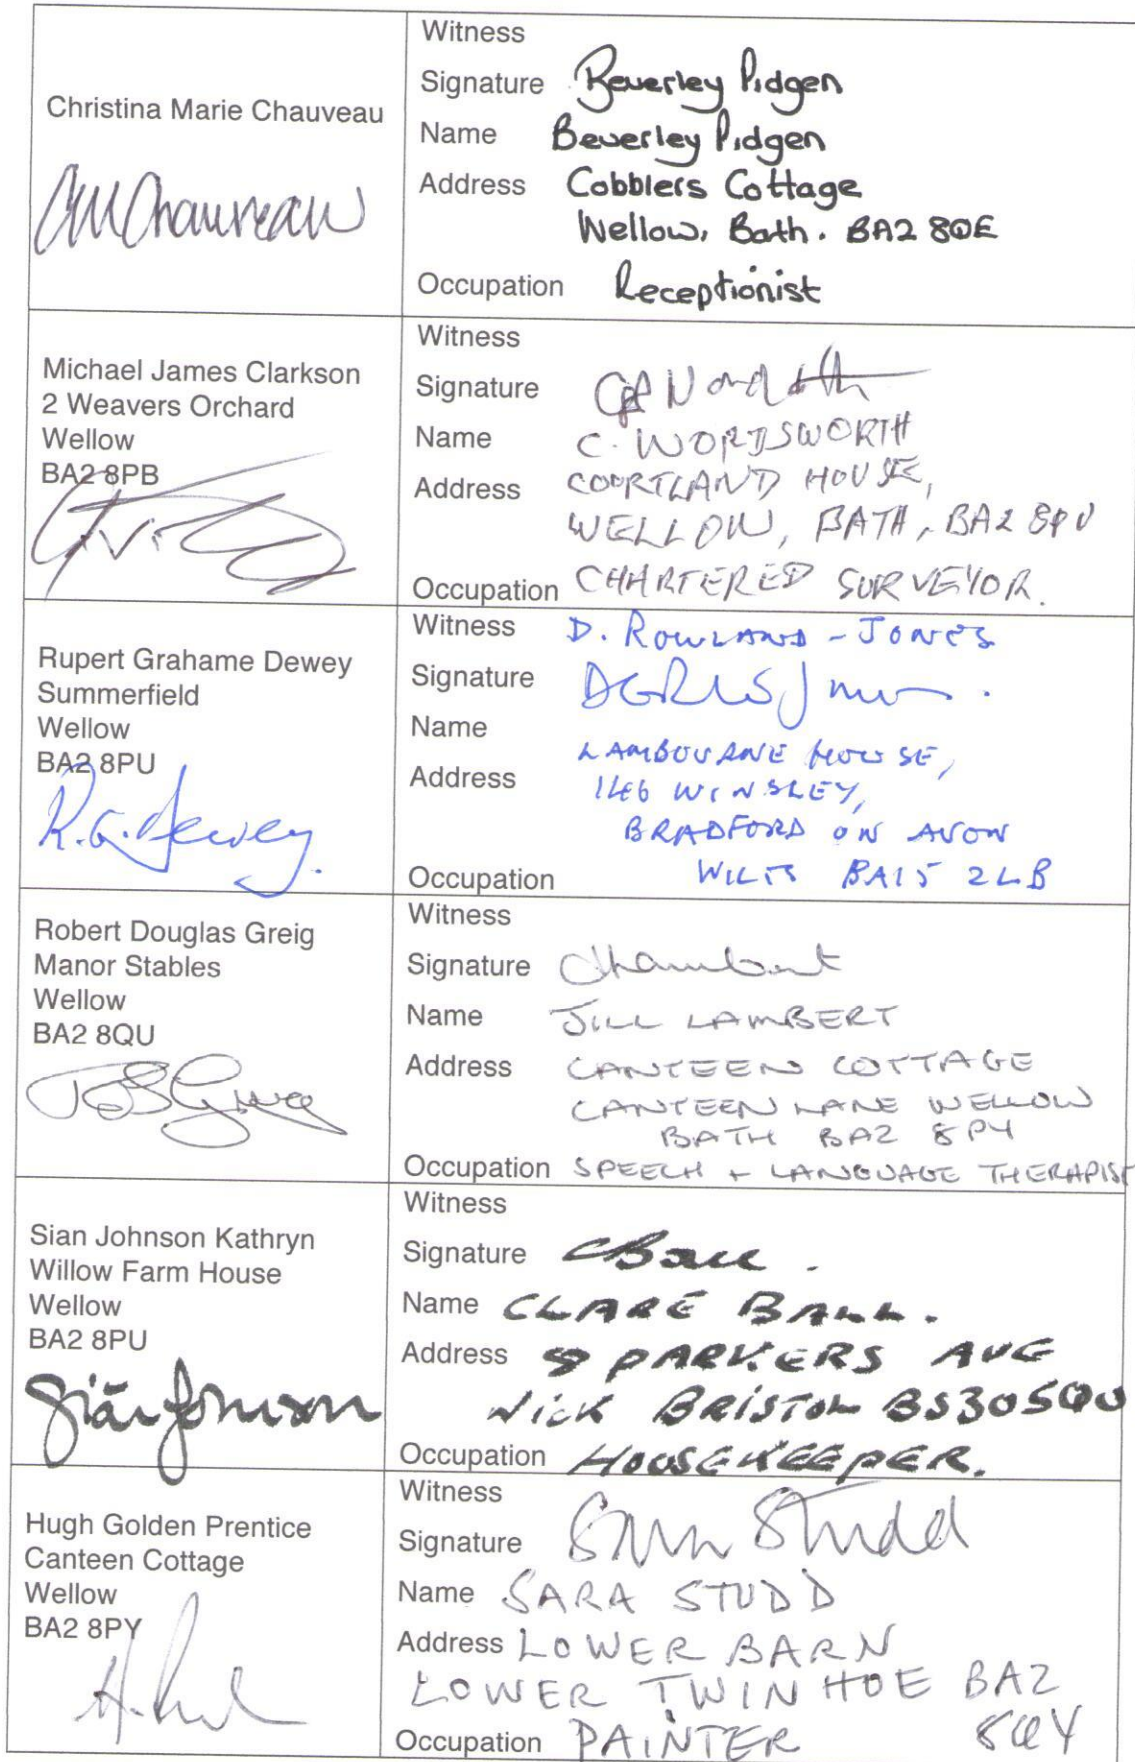 Christina Marie Chauveau
CMChauveau
Witness
Signature Beverley Pidgen
Name Beverley Pidgen
Address Cobblers Cottage
Wellow, Bath. BA2 8QE
Occupation Receptionist
Michael James Clarkson
2 Weavers Orchard
Wellow
BA2 8PB
Witness
Signature
Name C. WORDSWORTH
Address COURTLAND HOUSE,
WELLOW, BATH, BA2 8PU
Occupation CHARTERED SURVEYOR.
Rupert Grahame Dewey
Summerfield
Wellow
BA2 8PU
R.G. Dewey.
Witness D. ROWLAND-JONES
Signature
Name
LAMBOURNE HOUSE,
Address 146 WINSLEY,
BRADFORD ON AVON
Occupation WILTS BA15 2LB
Robert Douglas Greig
Manor Stables
Wellow
BA2 8QU
Witness
Signature
Name JILL LAMBERT
Address CANTEEN COTTAGE
CANTEEN LANE WELLOW
BATH BA2 8PY
Occupation SPEECH + LANGUAGE THERAPIST
Sian Johnson Kathryn
Willow Farm House
Wellow
BA2 8PU
Siân Johnson
Witness
Signature CBall.
Name CLARE BALL.
Address 8 PARKERS AVE
WICK BRISTOL BS30 5QU
Occupation HOUSEKEEPER.
Hugh Golden Prentice
Canteen Cottage
Wellow
BA2 8PY
Witness
Signature Sara Studd
Name SARA STUDD
Address LOWER BARN
LOWER TWINHOE BA2
Occupation PAINTER 8QY